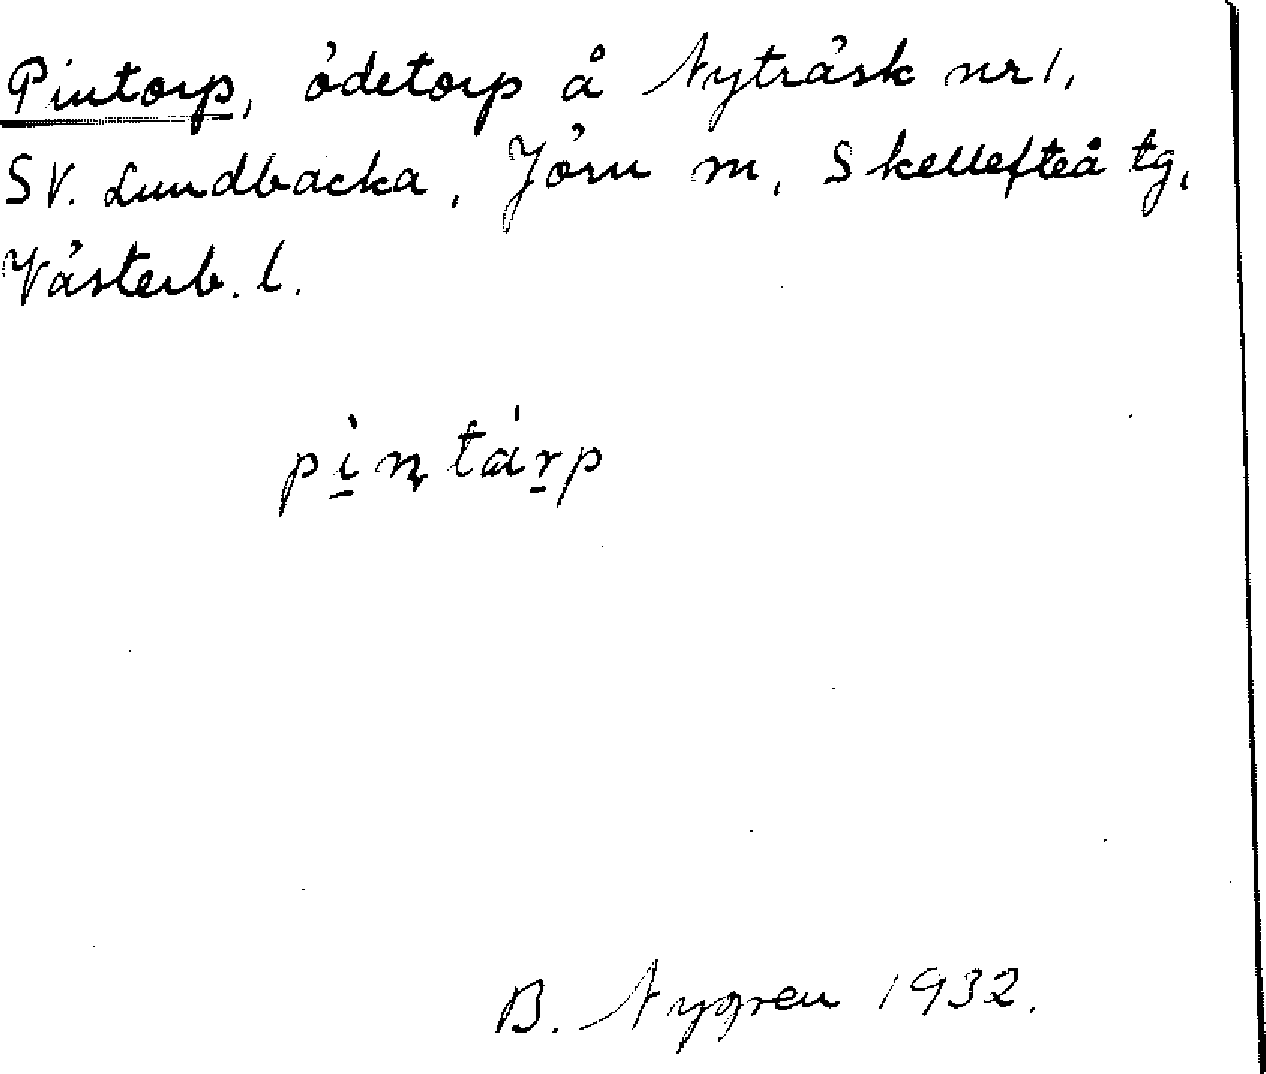 Pintorp, ödetorp å Nyträsk nr 1,
SV. Lundbacka, Jörn m, Skellefteå tg,
Västerb. l.
pìṉtárp
B. Nygren 1932.